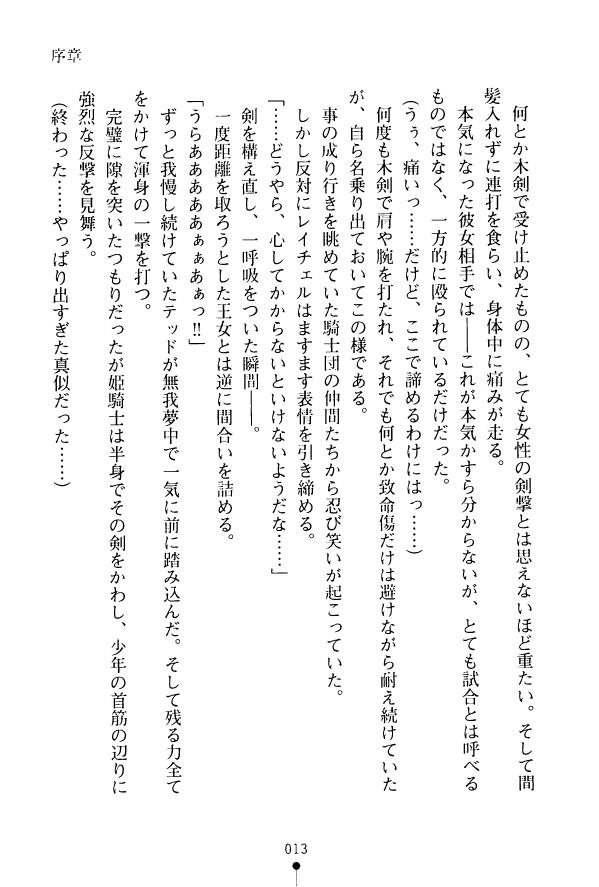 序章
何とか木剣で受け止めたものの、とても女性の剣撃とは思えないほど重たい。そして間
髪入れずに連打を食らい、身体中に痛みが走る。
本気になった彼女相手では――これが本気かすら分からないが、とても試合とは呼べる
ものではなく、一方的に殴られているだけだった。
（うぅ、痛いっ……だけど、ここで諦めるわけにはっ……）
何度も木剣で肩や腕を打たれ、それでも何とか致命傷だけは避けながら耐え続けていた
が、自ら名乗り出ておいてこの様である。
事の成り行きを眺めていた騎士団の仲間たちから忍び笑いが起こっていた。
しかし反対にレイチェルはますます表情を引き締める。
「……どうやら、心してかからないといけないようだな……」
剣を構え直し、一呼吸をついた瞬間――。
一度距離を取ろうとした王女とは逆に間合いを詰める。
「うらあああああぁぁあぁっ!!」
ずっと我慢し続けていたテッドが無我夢中で一気に前に踏み込んだ。そして残る力全て
をかけて渾身の一撃を打つ。
完璧に隙を突いたつもりだったが姫騎士は半身でその剣をかわし、少年の首筋の辺りに
強烈な反撃を見舞う。
（終わった……やっぱり出すぎた真似だった……）
013